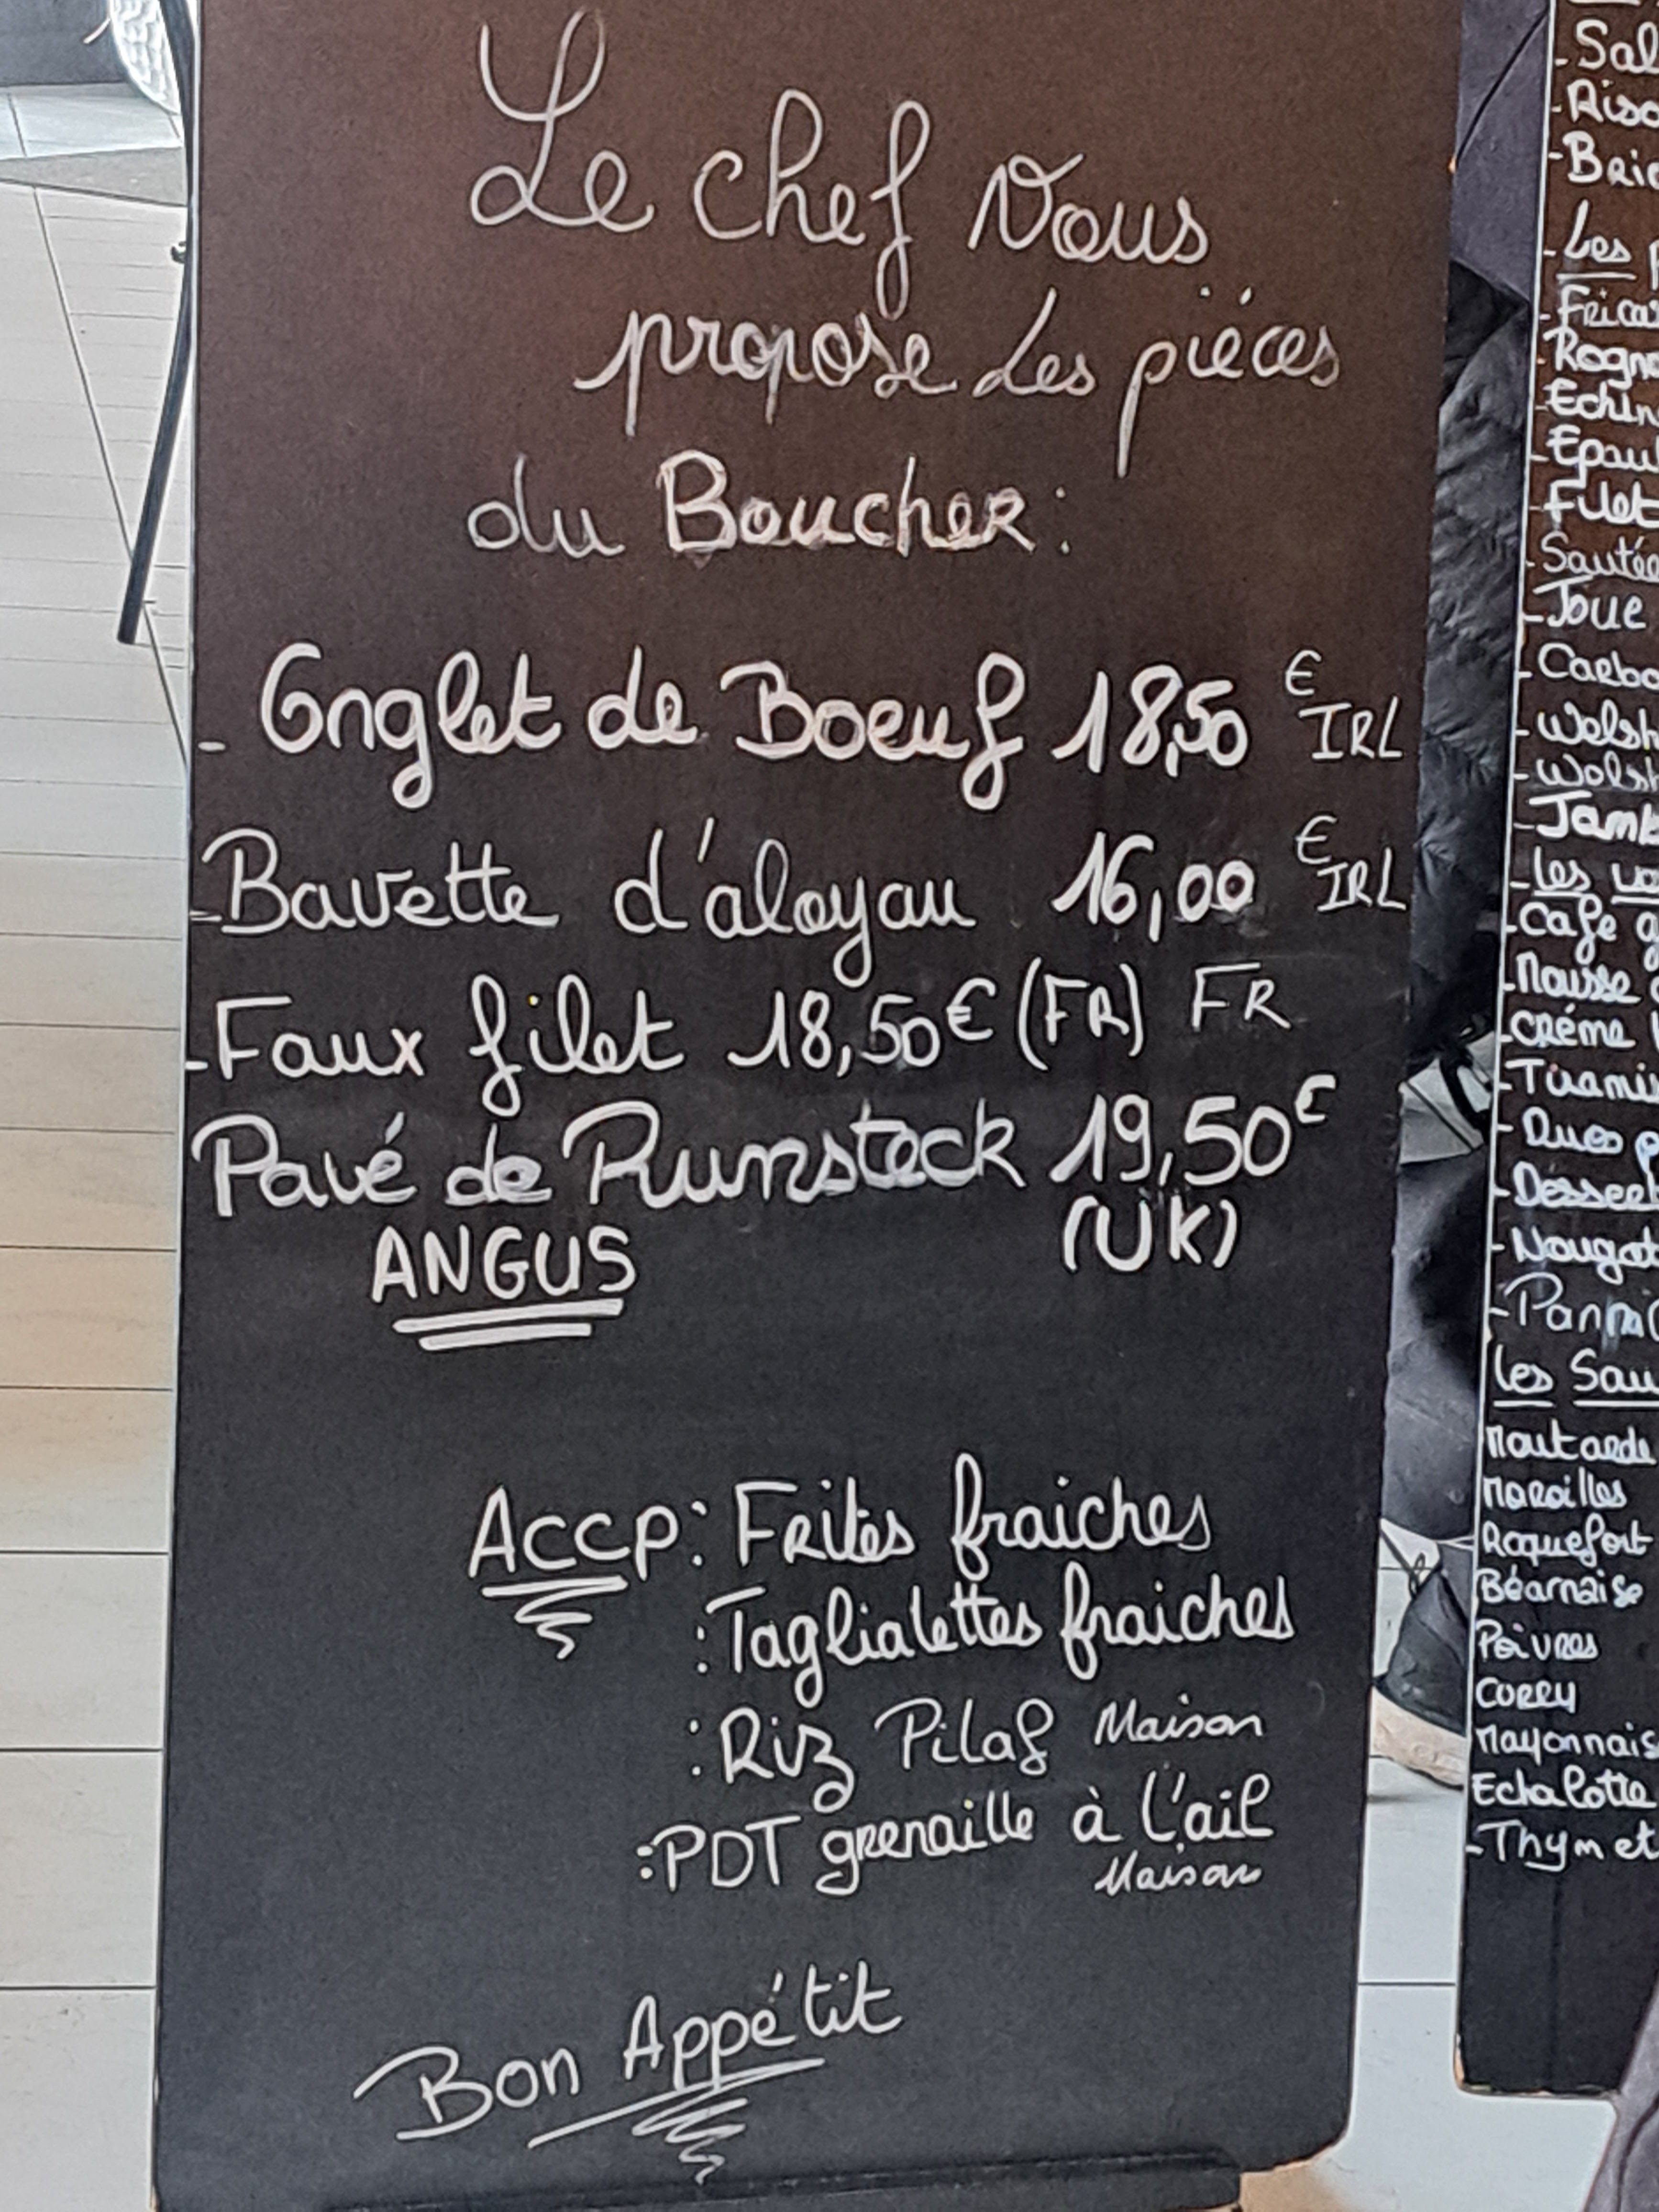 Le chef Vous
propose Les piéces
du Boucher :
- Onglet de Boeuf 18,50 € IRL
- Bavette d'aloyau 16,00 € IRL
- Faux filet 18,50€ (FR) FR
Pavé de Rumsteck 19,50€
ANGUS (UK)
ACCP : Frites fraiches
: Taglialettes fraiches
: Riz Pilaf Maison
: PDT grenaille à L'ail
Maison
Bon Appétit
- Sal
- Riso
- Bric
- Les p
- Fricas
- Rogno
- Echin
- Epaul
- Filet
- Sautée
- Joue
- Carbo
- Welsh
- Welsh
- Jamb
- Les
- Café g
- Mousse
- Créme
- Tiramis
- Duos p
- Dessert
- Nougat
- Panna
Les Sau
Moutarde
Maroilles
Roquefort
Béarnaise
Poivres
Curry
Mayonnais
Echalotte
- Thym et